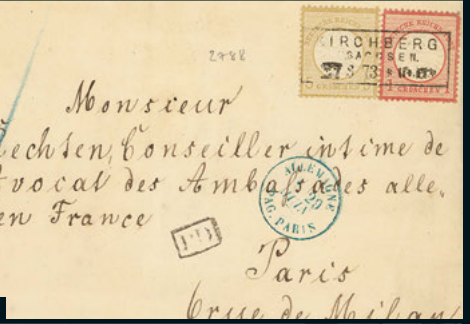 2788
KIRCHBERG
SACHSEN.
Monsieur
echten, Conseiller intime de
vocat des Ambassades alle.
en France
ALLEMAGNE
PARIS
PD
Paris
6 rue de Milan